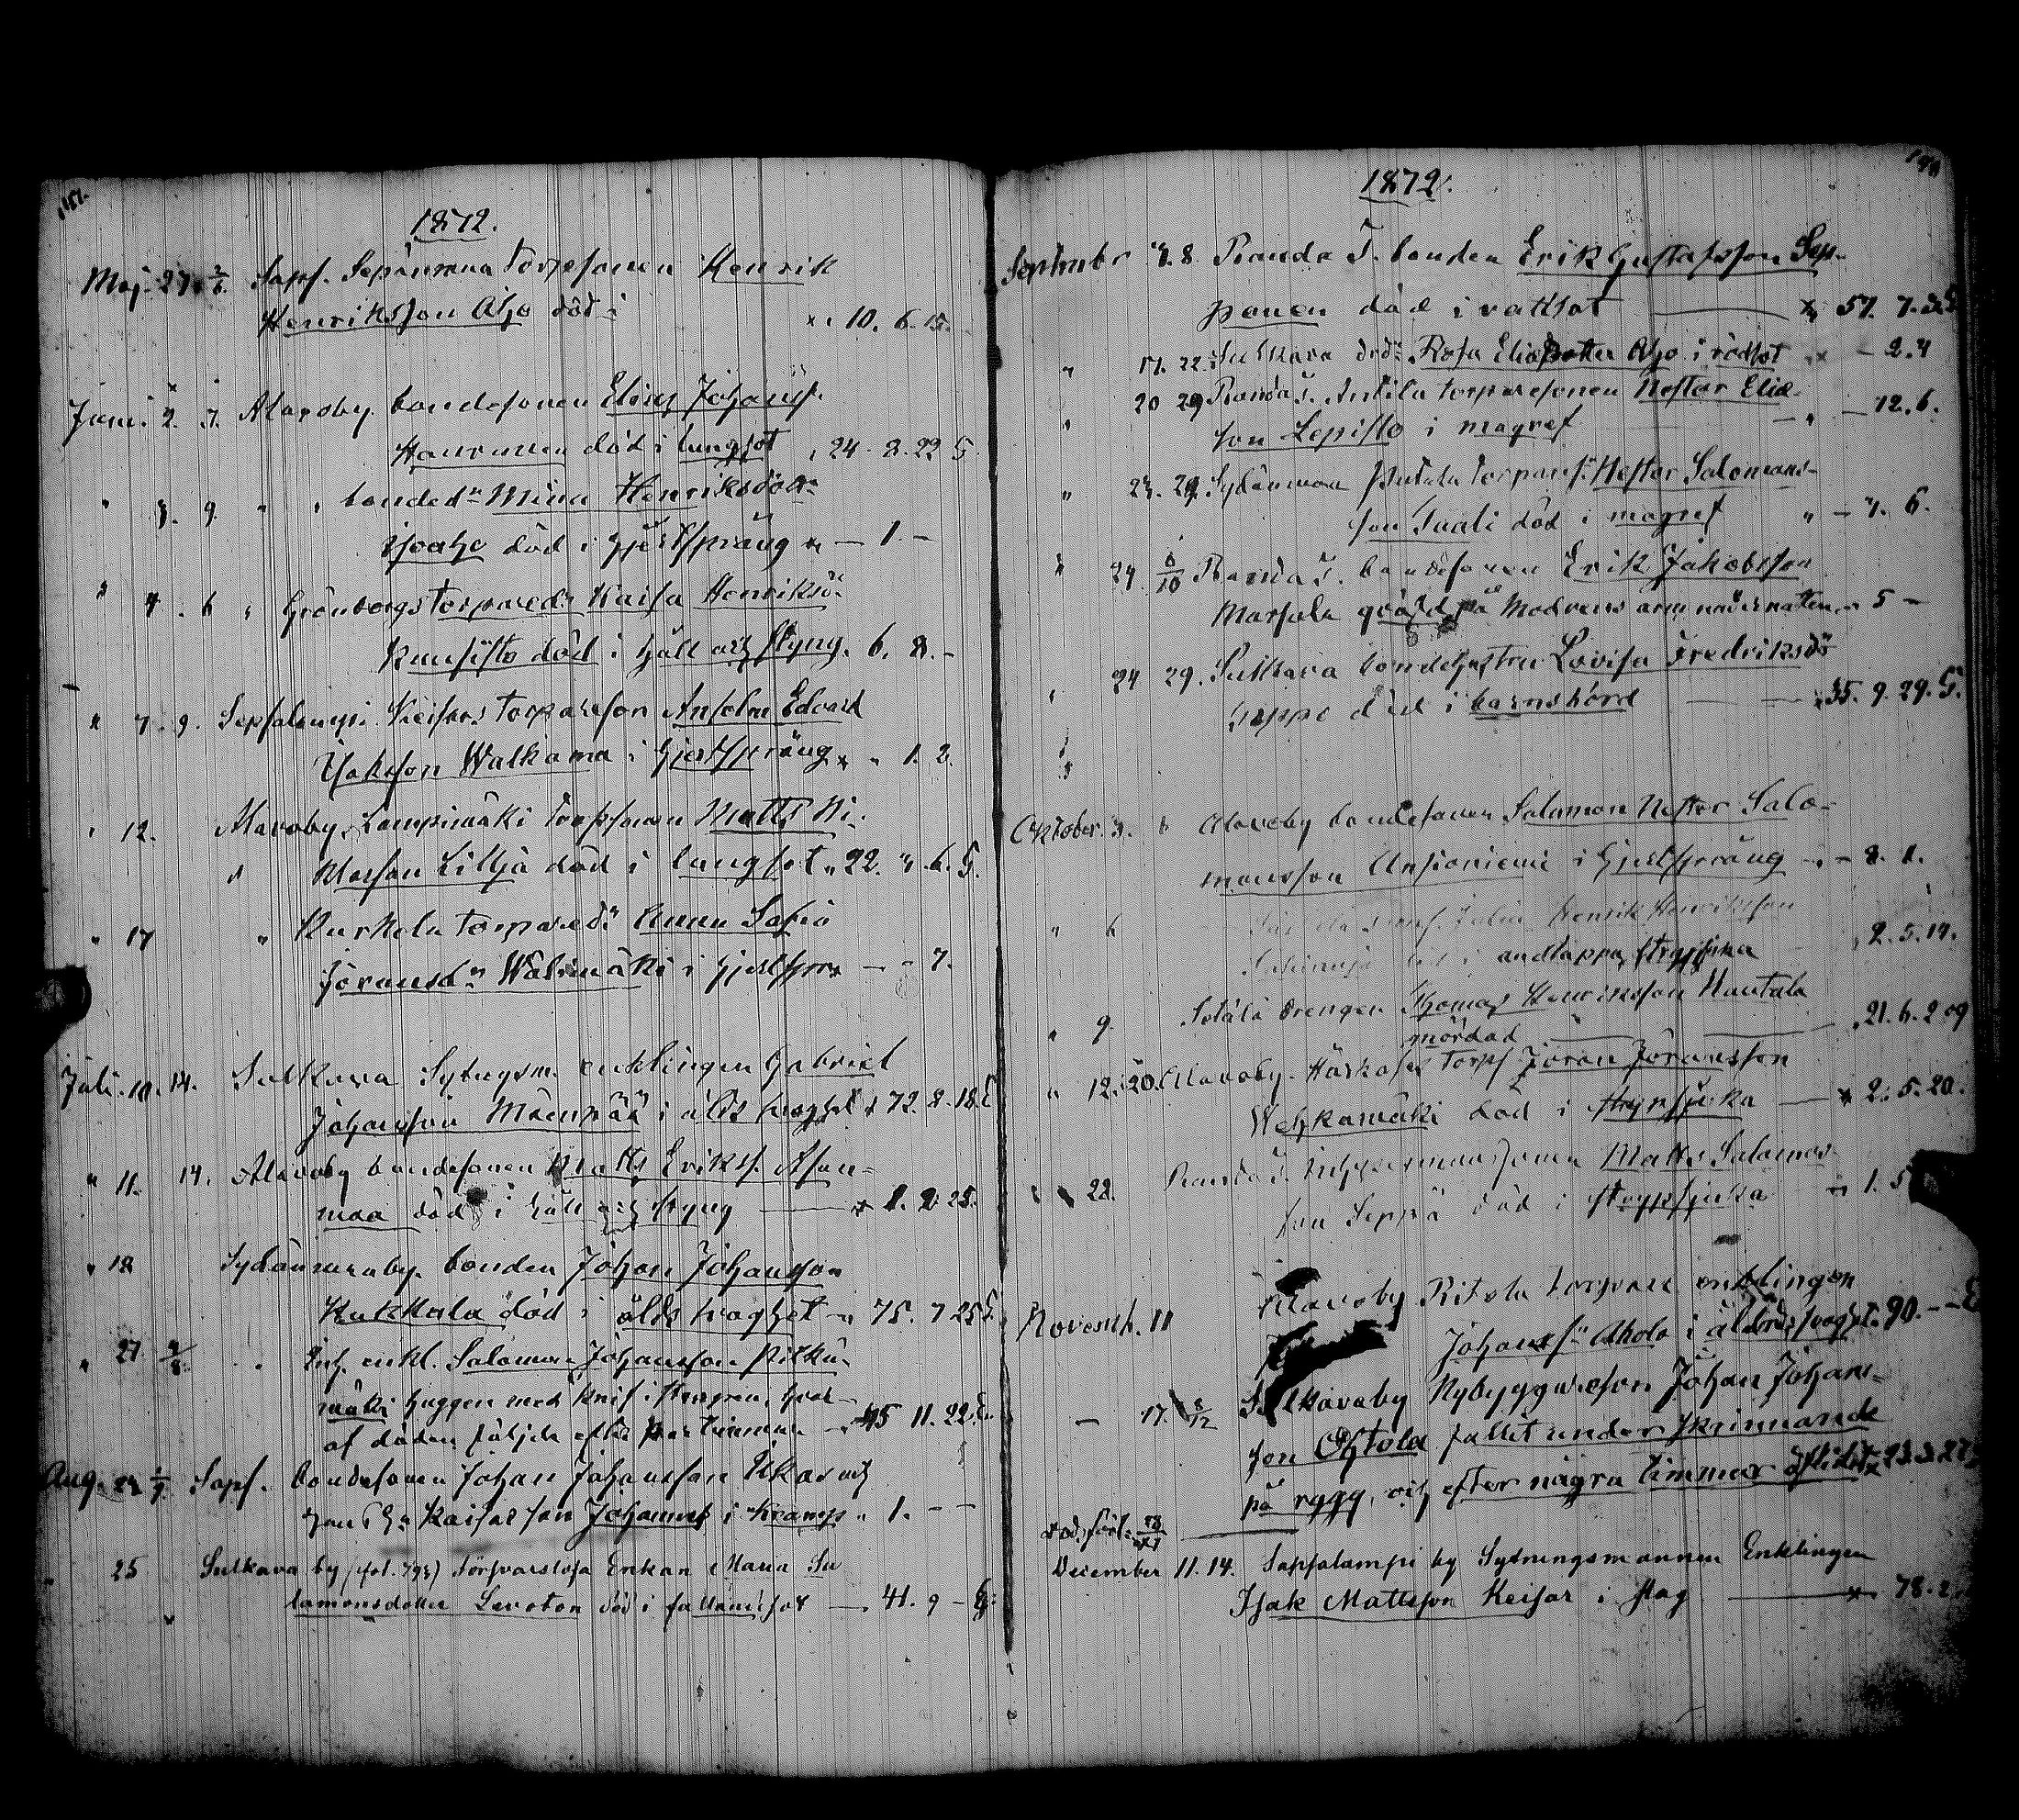 1872.
Maj. 27. 2/6. Saps. Sepänmaa torpsonen Henrik
Henriksson Aho död i " 10. 6. 15.
Juni. 2. 7. Alavoby. bondesonen Elias Johanss.
Haurunen död i lungsot " 24. 8. 22 S
" 3. 9. " " bonded:r Mina Henriksdotr
död i hjertspräng x — 1. —
" 4. 6 " Grönbergs torpared:r Kaisa Henriksd:r
Kunsisto död i håll och styng. 6. 8. —
" 7. 9. Sapsalampi Keisars torpareson Anselm Edvard
Isaksson Walkama i hjertspräng x " 1. 2.
" 12. Alavoby, Lampimäki torpsonen Matts Ni-
klasson Lilljа död i lungsot " 22. 4. 6. S.
" 17 " Kurkela torpared:r Anna Sofia
Göransd:r Wälimäki i hjertspr. — - 7.
Juli. 10. 14. Sulkava Sytngsm. enklingen Gabriel
Johansson Mäenpää i ålds svaghet x 72. 2. 18. E
" 11. 14. Alavoby bondesonen Matts Erikss. Asun-
maa död i håll och styng — x 1. 2 25.
" 18 Sydänmaaby. bonden Johan Johansson
Kukkola död i ålds svaghet — 75. 7 25 S.
" 27 4/8 " Inh. enkl. Salomon Johansson Pitkä-
mäki huggen med knif i strupen, hvar-
af döden följde efter timmar — 45 11. 22.
Aug. 24 1/9 Saps. bondesonen Johan Johansson Ukas och
hans h:u Kaisas son Johannes i kramp " 1. - -
" 25 Sulkava by (fol. 793) försvarslösa Enkan Maria Sa
lomonsdotter Levoton död i fallandesot — 41. 9 —
1872.
September 3. 8. Randa T. bonden Erik Gustafsson Sep-
panen död i vattsot — x 57. 7.
" 17. 22 Sulkava drd:r Rosa Eliedotter Aho i rödsot " x — 2. 4
" 20 29 Randa T. Antila torparesonen Nestor Elie-
son Lepisto i magref — " — 12. 6.
" 23. 29. Sydänmaa Putula torpares: Nestor Salomons-
son Tuuli död i magref " — 7. 6.
" 24 6/10 Randa T. bondesonen Erik Jakobsson
Marsula qväfd på modrens arm under natten " 5 —
" 24 29. Sulkava bondehustru Lovisa Fredriksd:r
Seppe död i barnsbörd — " 35. 9. 29. G.
Oktober. 3. " Alavoby bondesonen Salomon Nestor Salo-
monsson Ansioniemi i hjertspräng — - 3. 1.
" 6 Henrik Henriksson
i andtäppa, strypsjuka " 2. 5. 14.
" 9. drengen Thomas Henriksson Rautala
mördad — " 21. 6. 2 09
" 12. 20. Alavoby. torps Göran Göransson
Wehkamäki död i strypsjuka — x 2. 5. 20.
" " 22. Randa T. Inhysesmansonen Matts Salomos
son Seppä död i strypsjuka — 1. 5
Novemb. 11 Alavoby Ritola torpare enklingen
Johan s:n Ahola i ålderdomssvaghet. 90. — — E
— 17. 8/12 Sulkavaby Nybyggareson Johan Johans-
son Ojstola fallit under skrinnande
på rygg, och efter några timmar aflidit x 23. 3. 27
December 11. 14. Sapsalampi by Sytningsmannen Enklingen
Isak Mattsson Keisar i slag — x 78. 2